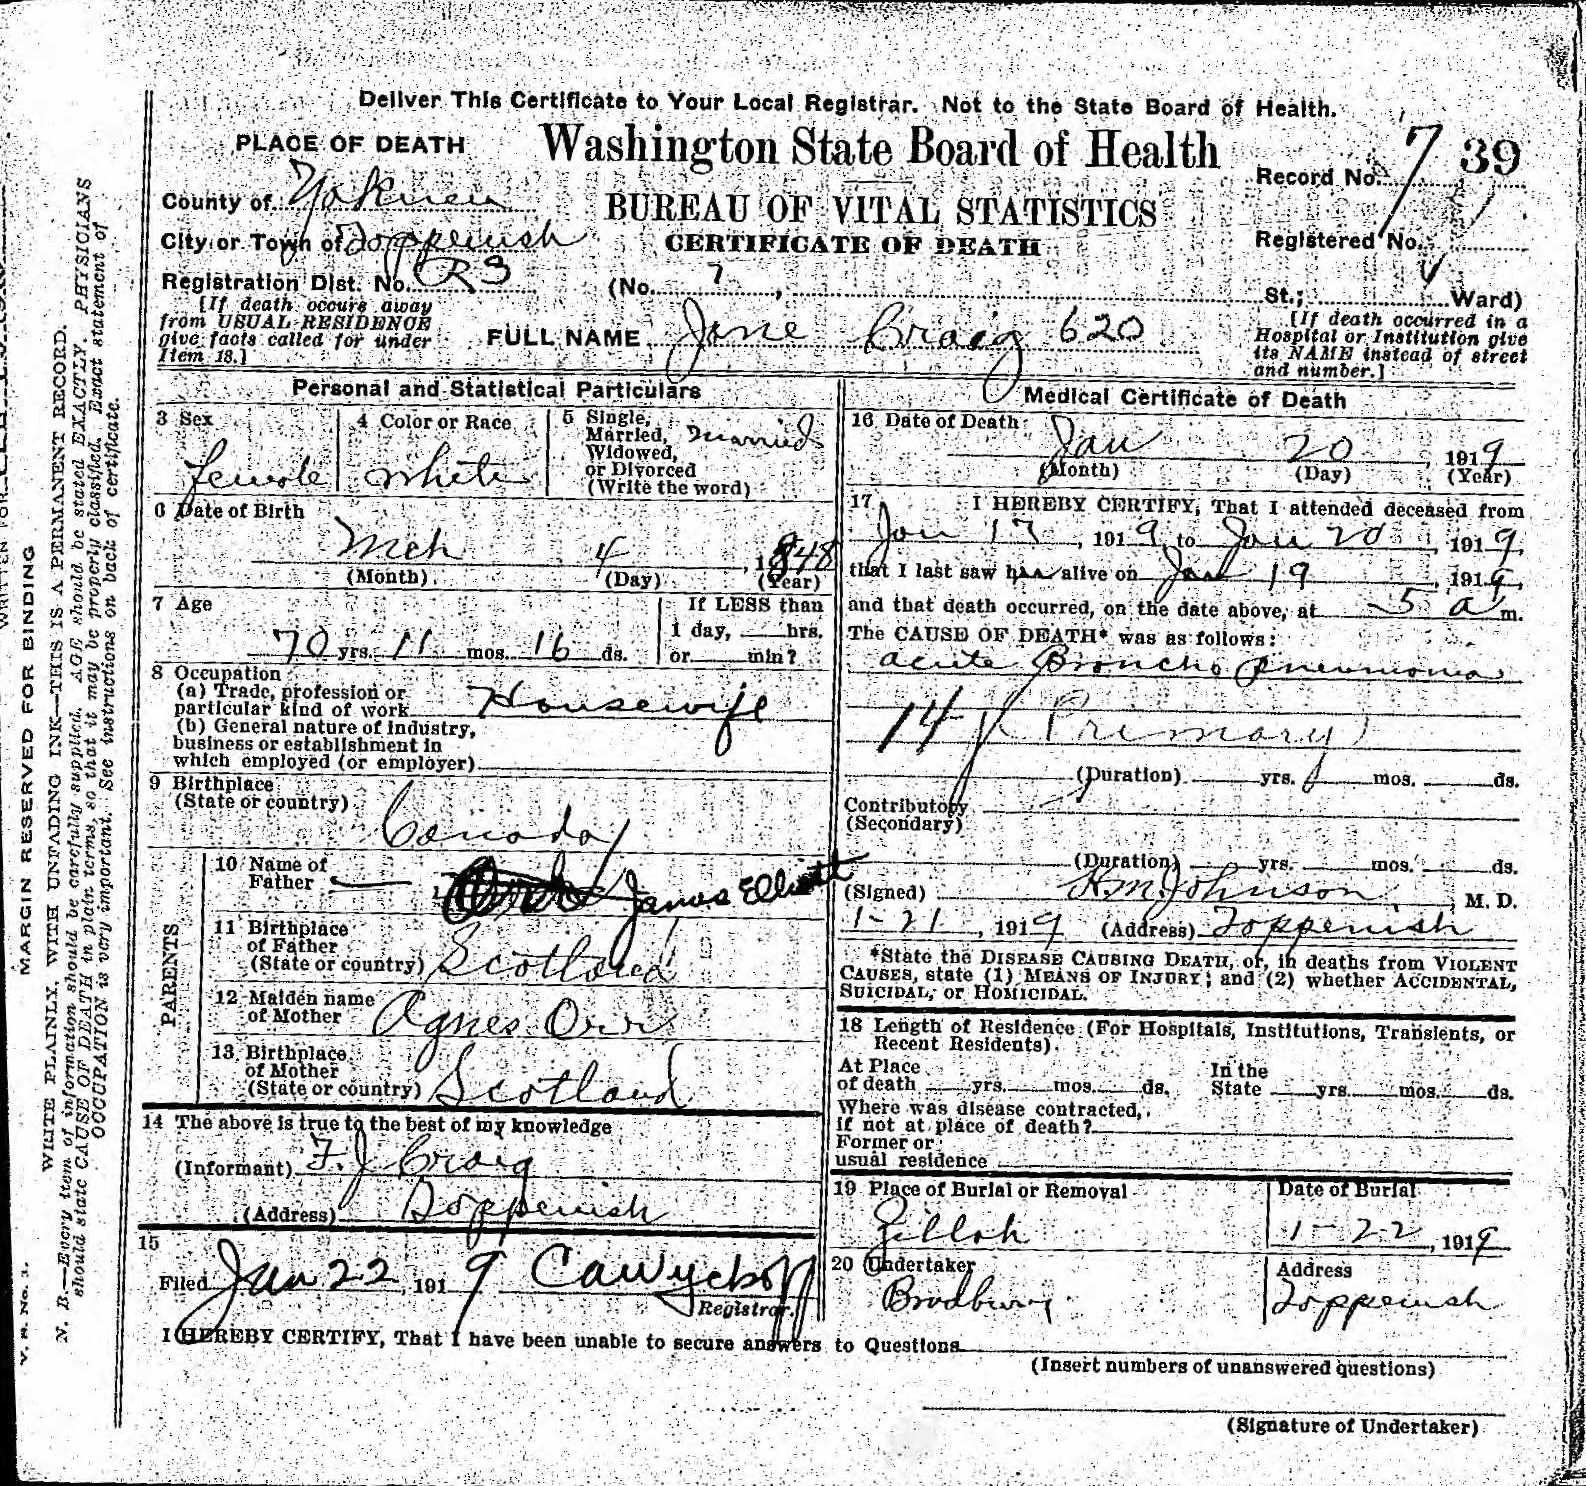 Deliver This Certificate to Your Local Registrar. Not to the State Board of Health.
PLACE OF DEATH
Washington State Board of Health
Record No. 7 39
County of Yakima
BUREAU OF VITAL STATISTICS
City or Town of Toppenish
CERTIFICATE OF DEATH
Registered No.
Registration Dist. No. R3
(No. 7, St.; Ward)
[If death occurs away
from USUAL RESIDENCE
give facts called for under
Item 18.]
FULL NAME Jane Craig 620
[If death occurred in a
Hospital or Institution give
its NAME instead of street
and number.]
Personal and Statistical Particulars
3 Sex
Female
4 Color or Race
White
5 Single,
Married,
Widowed,
or Divorced
(Write the word)
Married
6 Date of Birth
Mch 4, 1848
(Month) (Day) (Year)
7 Age
70 yrs. 11 mos. 16 ds.
If LESS than
1 day, hrs.
or min?
8 Occupation
(a) Trade, profession or
particular kind of work Housewife
(b) General nature of industry,
business or establishment in
which employed (or employer)
9 Birthplace
(State or country)
Canada
PARENTS
10 Name of
Father James Elliott
11 Birthplace
of Father
(State or country) Scotland
12 Maiden name
of Mother Agnes Orr
13 Birthplace
of Mother
(State or country) Scotland
14 The above is true to the best of my knowledge
(Informant) F. J. Craig
(Address) Toppenish
15
Filed Jan 22, 1919 CA Wyckoff
Registrar.
Medical Certificate of Death
16 Date of Death
Jan 20, 1919
(Month) (Day) (Year)
17 I HEREBY CERTIFY, That I attended deceased from
Jan 17, 1919, to Jan 20, 1919,
that I last saw her alive on Jan 19, 1919,
and that death occurred, on the date above, at 5 a m.
The CAUSE OF DEATH* was as follows:
acute Broncho pneumonia
14 (Primary)
(Duration) yrs. mos. ds.
Contributory
(Secondary)
(Duration) yrs. mos. ds.
(Signed) H.M. Johnson, M. D.
1-21, 1919 (Address) Toppenish
*State the DISEASE CAUSING DEATH, or, in deaths from VIOLENT
CAUSES, state (1) MEANS OF INJURY; and (2) whether ACCIDENTAL,
SUICIDAL, or HOMICIDAL.
18 Length of Residence (For Hospitals, Institutions, Transients, or
Recent Residents).
At Place
of death yrs. mos. ds.
In the
State yrs. mos. ds.
Where was disease contracted,
if not at place of death?
Former or
usual residence
19 Place of Burial or Removal
Zillah
Date of Burial
1-22, 1919
20 Undertaker
Bradbury
Address
Toppenish
I HEREBY CERTIFY, That I have been unable to secure answers to Questions
(Insert numbers of unanswered questions)
(Signature of Undertaker)
MARGIN RESERVED FOR BINDING
WRITE PLAINLY, WITH UNFADING INK—THIS IS A PERMANENT RECORD.
N. B.—Every item of information should be carefully supplied. AGE should be stated EXACTLY. PHYSICIANS
should state CAUSE OF DEATH in plain terms, so that it may be properly classified. Exact statement of
OCCUPATION is very important. See instructions on back of certificate.
V. S. No. 1.